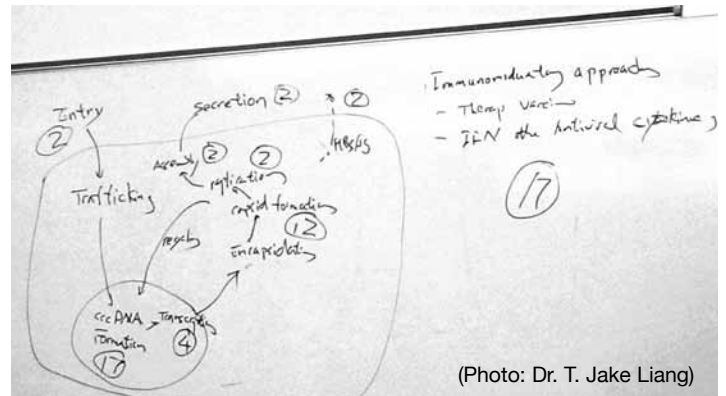 Entry
②
Trafficking
secretion ②
Assembly ②
②
replication
capsid formation
⑫
Encapsidation
recycling
cccDNA
Formation
⑰
Transcription
④
②
HBsAg
Immunomodulatory approach
- Therap vaccine
- IFN other Antiviral cytokines
⑰
(Photo: Dr. T. Jake Liang)